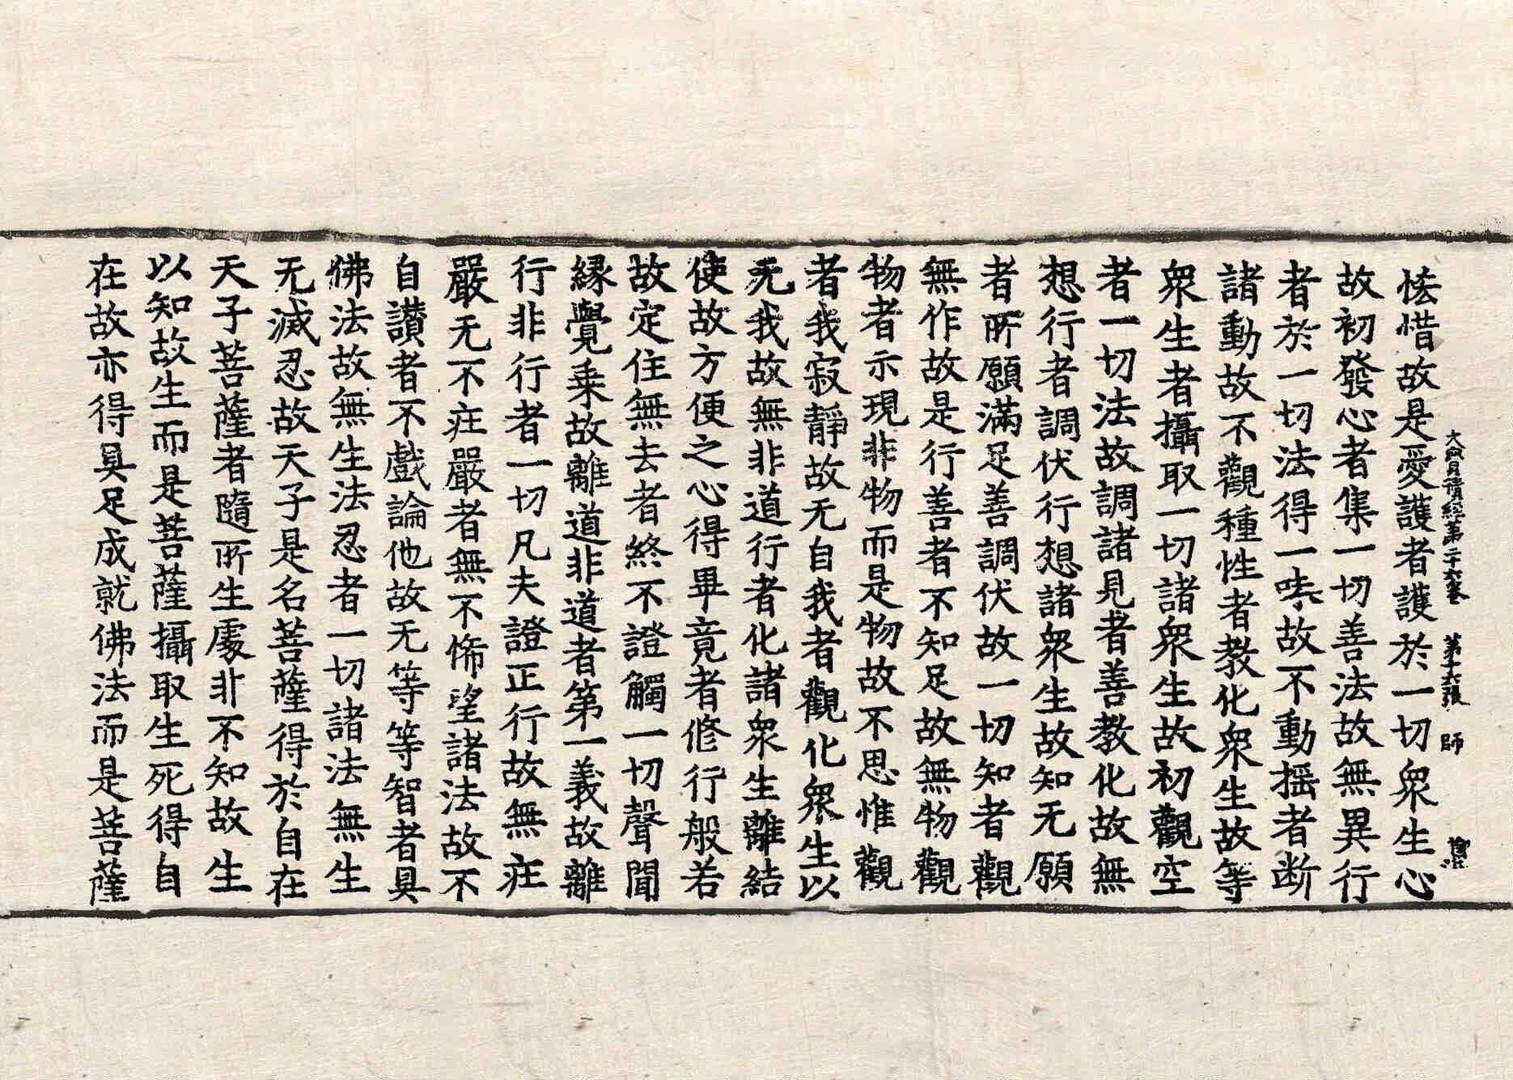 大寶積經第二十六卷 第十六張 師
恡惜故是愛護者護於一切眾生心
故初發心者集一切善法故無異行
者於一切法得一味故不動摇者断
諸動故不觀種性者教化眾生故等
眾生者攝取一切諸眾生故初觀空
者一切法故調諸見者善教化故無
想行者調伏行想諸眾生故知无願
者所願滿足善調伏故一切知者觀
無作故是行善者不知足故無物觀
物者示現非物而是物故不思惟觀
者我寂靜故无自我者觀化眾生以
无我故無非道行者化諸眾生離結
使故方便之心得畢竟者修行般若
故定住無去者終不證觸一切聲聞
縁覺乘故離道非道者第一義故離
行非行者一切凡夫證正行故無疘
嚴无不疘嚴者無不悕望諸法故不
自讃者不戲論他故无等等智者具
佛法故無生法忍者一切諸法無生
无滅忍故天子是名菩薩得於自在
天子菩薩者隨所生處非不知故生
以知故生而是菩薩攝取生死得自
在故亦得具足成就佛法而是菩薩